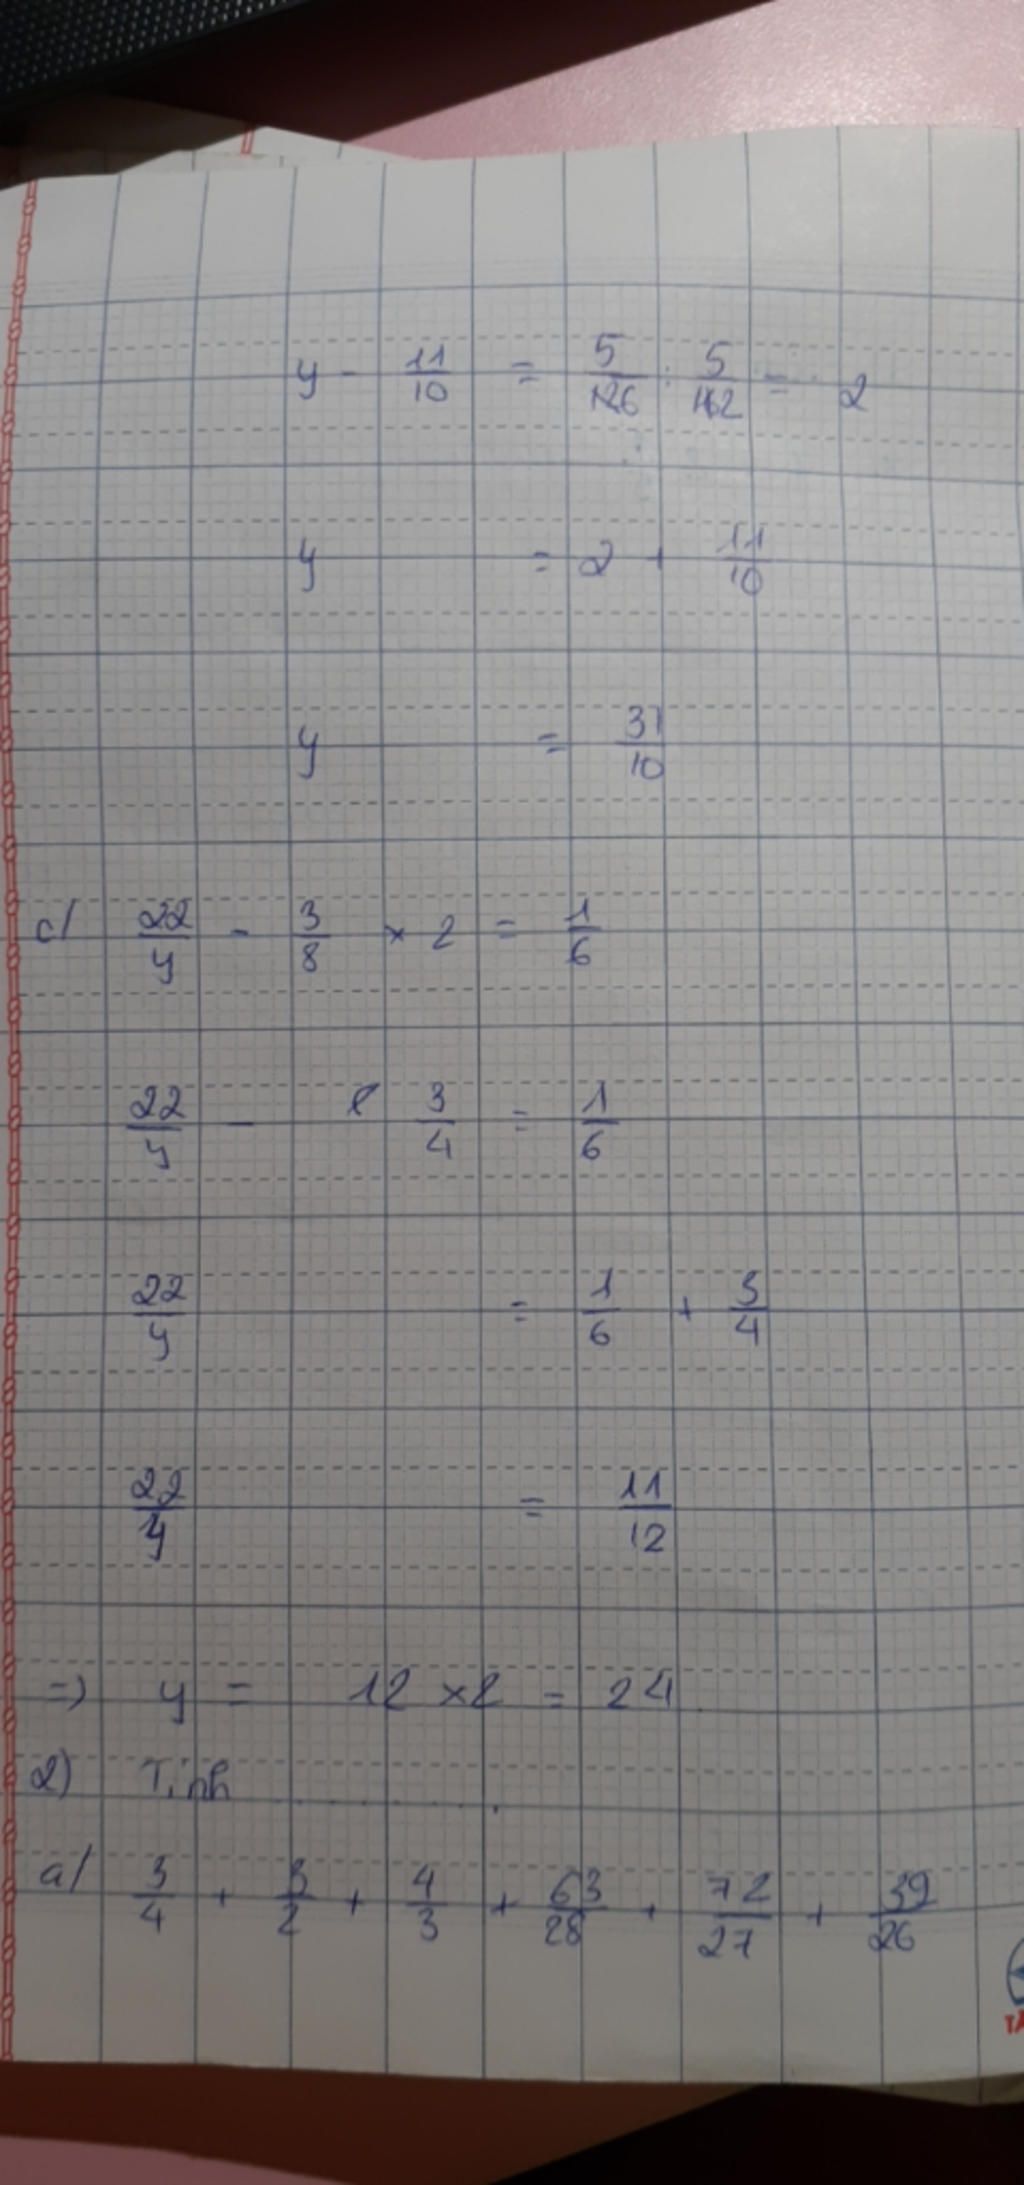 y - 11/10 = 5/126 : 5/162 = 2
y = 2 + 11/10
y = 31/10
c/ 22/y - 3/8 × 2 = 1/6
22/y - 3/4 = 1/6
22/y = 1/6 + 3/4
22/y = 11/12
=) y = 12 × 2 = 24
2) Tính
a/ 3/4 + 3/2 + 4/3 + 63/28 + 72/27 + 39/26